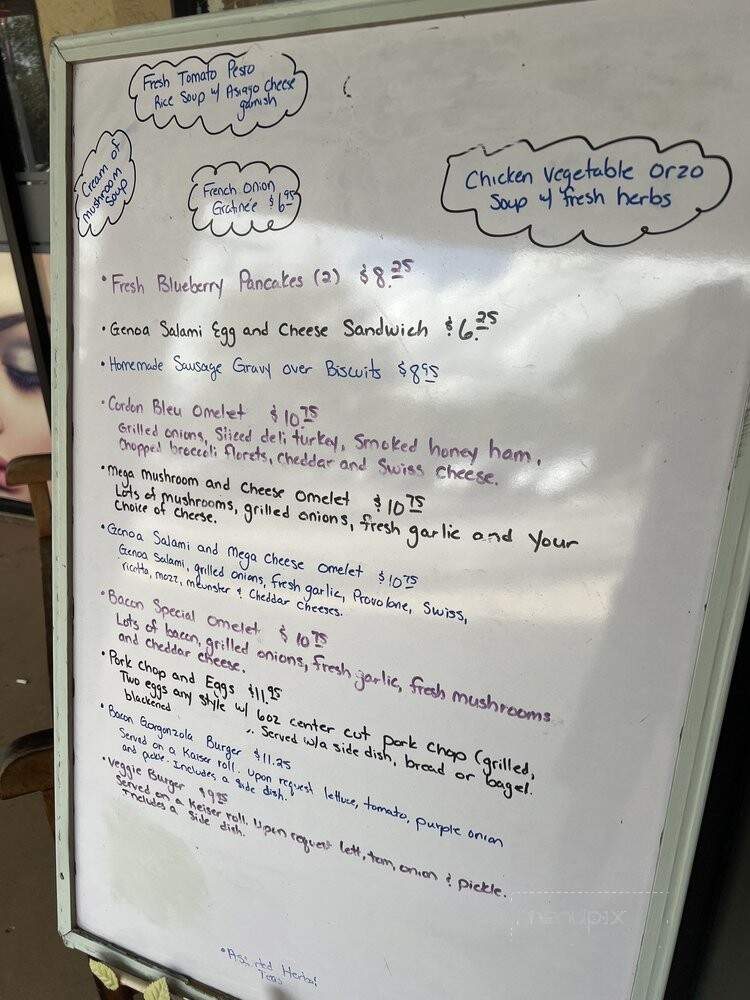 Fresh Tomato Pesto
Rice Soup w/ Asiago Cheese
garnish
Cream of
mushroom
Soup
French Onion
Gratinée $6.95
Chicken Vegetable Orzo
Soup w/ fresh herbs
• Fresh Blueberry Pancakes (2) $8.25
• Genoa Salami Egg and Cheese Sandwich $6.25
• Homemade Sausage Gravy over Biscuits $8.95
• Cordon Bleu Omelet $10.75
Grilled onions, Sliced deli turkey, Smoked honey ham,
Chopped broccoli florets, Cheddar and Swiss cheese.
• Mega mushroom and Cheese Omelet $10.75
Lots of mushrooms, grilled onions, fresh garlic and your
Choice of Cheese.
• Genoa Salami and Mega Cheese Omelet $10.75
Genoa Salami, grilled onions, fresh garlic, Provolone, Swiss,
ricotta, mozz, meunster & Cheddar Cheeses.
• Bacon Special Omelet $10.75
Lots of bacon, grilled onions, fresh garlic, fresh mushrooms
and cheddar cheese.
• Pork Chop and Eggs $11.95
Two eggs any style w/ 6oz center cut pork chop (grilled,
blackened .. Served w/a side dish, bread or bagel.
• Bacon Gorgonzola Burger $11.25
Served on a Kaiser roll. Upon request lettuce, tomato, purple onion
and pickle. Includes a side dish.
• Veggie Burger $9.25
Served on a Keiser roll. Upon request lett, tom, onion & pickle.
Includes a side dish.
• Assorted Herbal
Teas
menupix